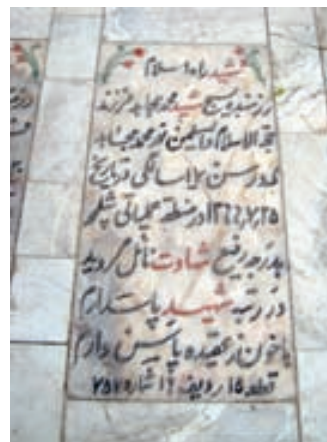 شهید راه اسلام
رزمنده بسیج شهید محمد مجاهد فرزند
حجةالاسلام والمسلمین نور محمد مجاهد
که در سن ۱۷ سالگی در تاریخ
۱۳۶۶,۷,۲۵ در منطقه عملیاتی شلمچه
بدرجه رفیع شهادت نائل گردید
در رتبه شهید پاسدارم
با خون ز عقیده پاس دارم
قطعه ۱۵ ردیف ۱۲ شماره ۷۵۷